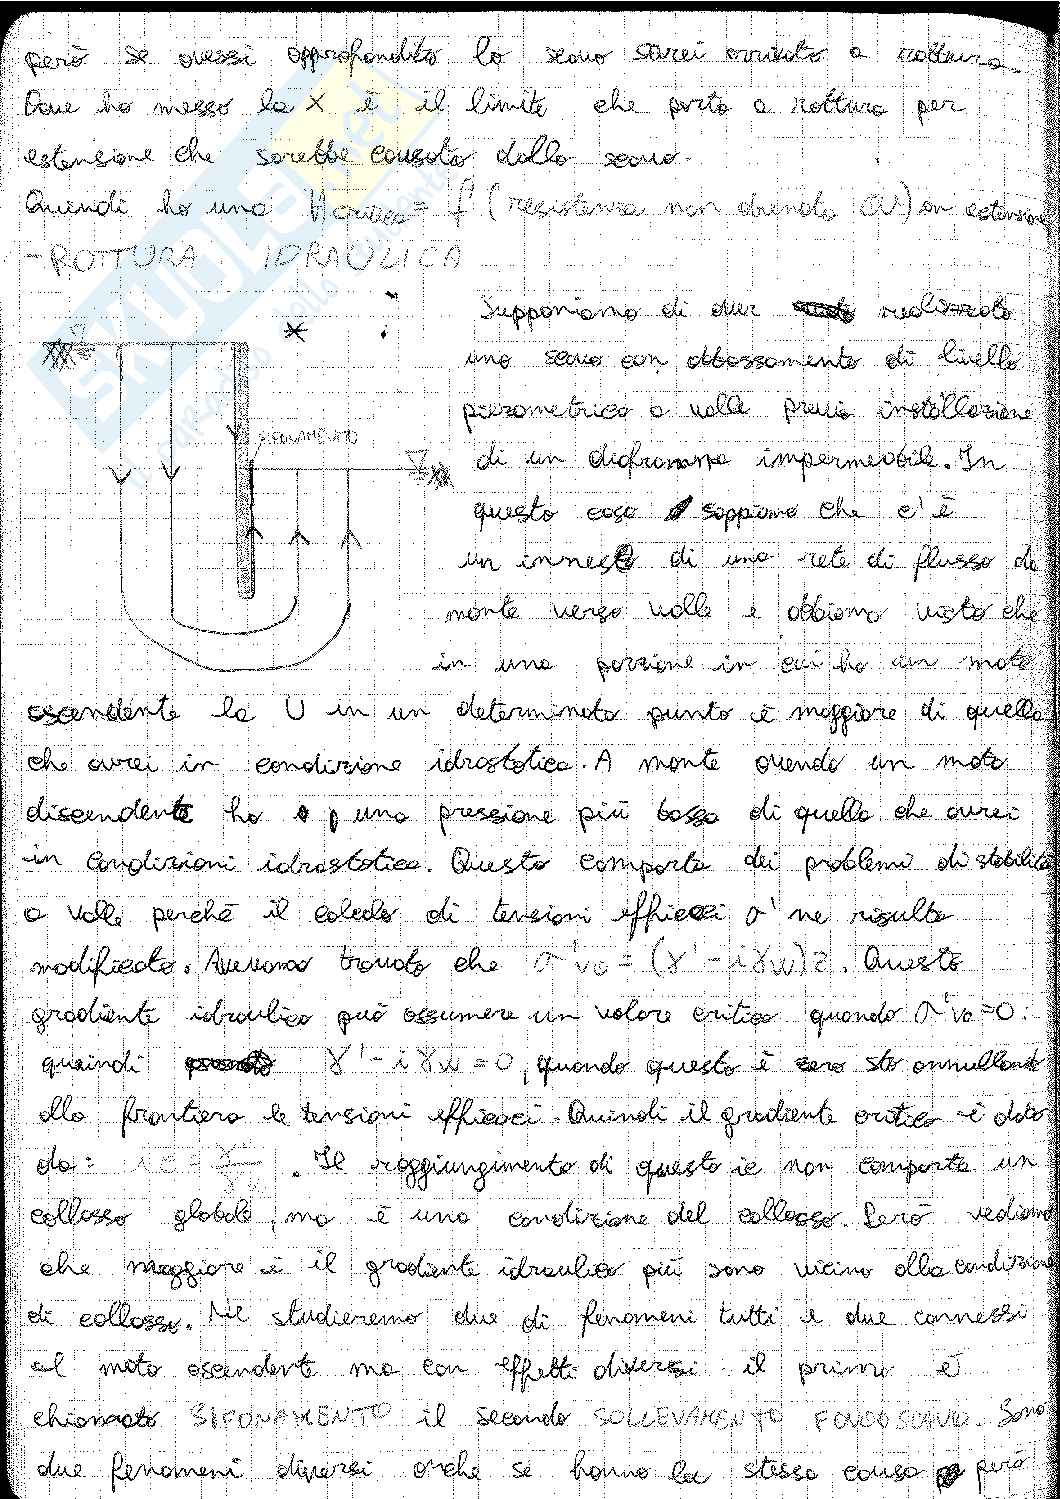 però se avessi approfondito lo scavo sarei arrivato a rottura.
Dove ho messo la X è il limite che porta a rottura per
estensione che sarebbe causata dallo scavo.
Quindi ho una Hcritica = f (resistenza non drenata CU) in estensione
- ROTTURA IDRAULICA
Supponiamo di aver realizzato
uno scavo con abbassamento di livello
piezometrico a valle previa installazione
di un diaframma impermeabile. In
questo caso sappiamo che c'è
un innesto di una rete di flusso da
monte verso valle e abbiamo visto che
in una porzione in cui ho un moto
ascendente la U in un determinato punto è maggiore di quella
che avrei in condizione idrostatica. A monte avendo un moto
discendente ho una pressione più bassa di quella che avrei
in condizioni idrostatica. Questo comporta dei problemi di stabilità
a valle perchè il calcolo di tensioni efficaci σ' ne risulta
modificato. Avevamo trovato che σ'vo = (γ' - iγw)z. Questo
gradiente idraulico può assumere un valore critico quando σ'vo = 0.
quindi γ' - iγw = 0, quando questo è zero sto annullando
alla frontiera le tensioni efficaci. Quindi il gradiente critico è dato
da: ic = . Il raggiungimento di questo ic non comporta un
collasso globale, ma è una condizione del collasso. Però vediamo
che maggiore è il gradiente idraulico più sono vicino alla condizione
di collasso. Ne studieremo due di fenomeni tutti e due connessi
al moto ascendente ma con effetti diversi il primo è
chiamato SIFONAMENTO il secondo SOLLEVAMENTO FONDO SCAVO. Sono
due fenomeni diversi anche se hanno la stessa causa però
SKUOLA.net